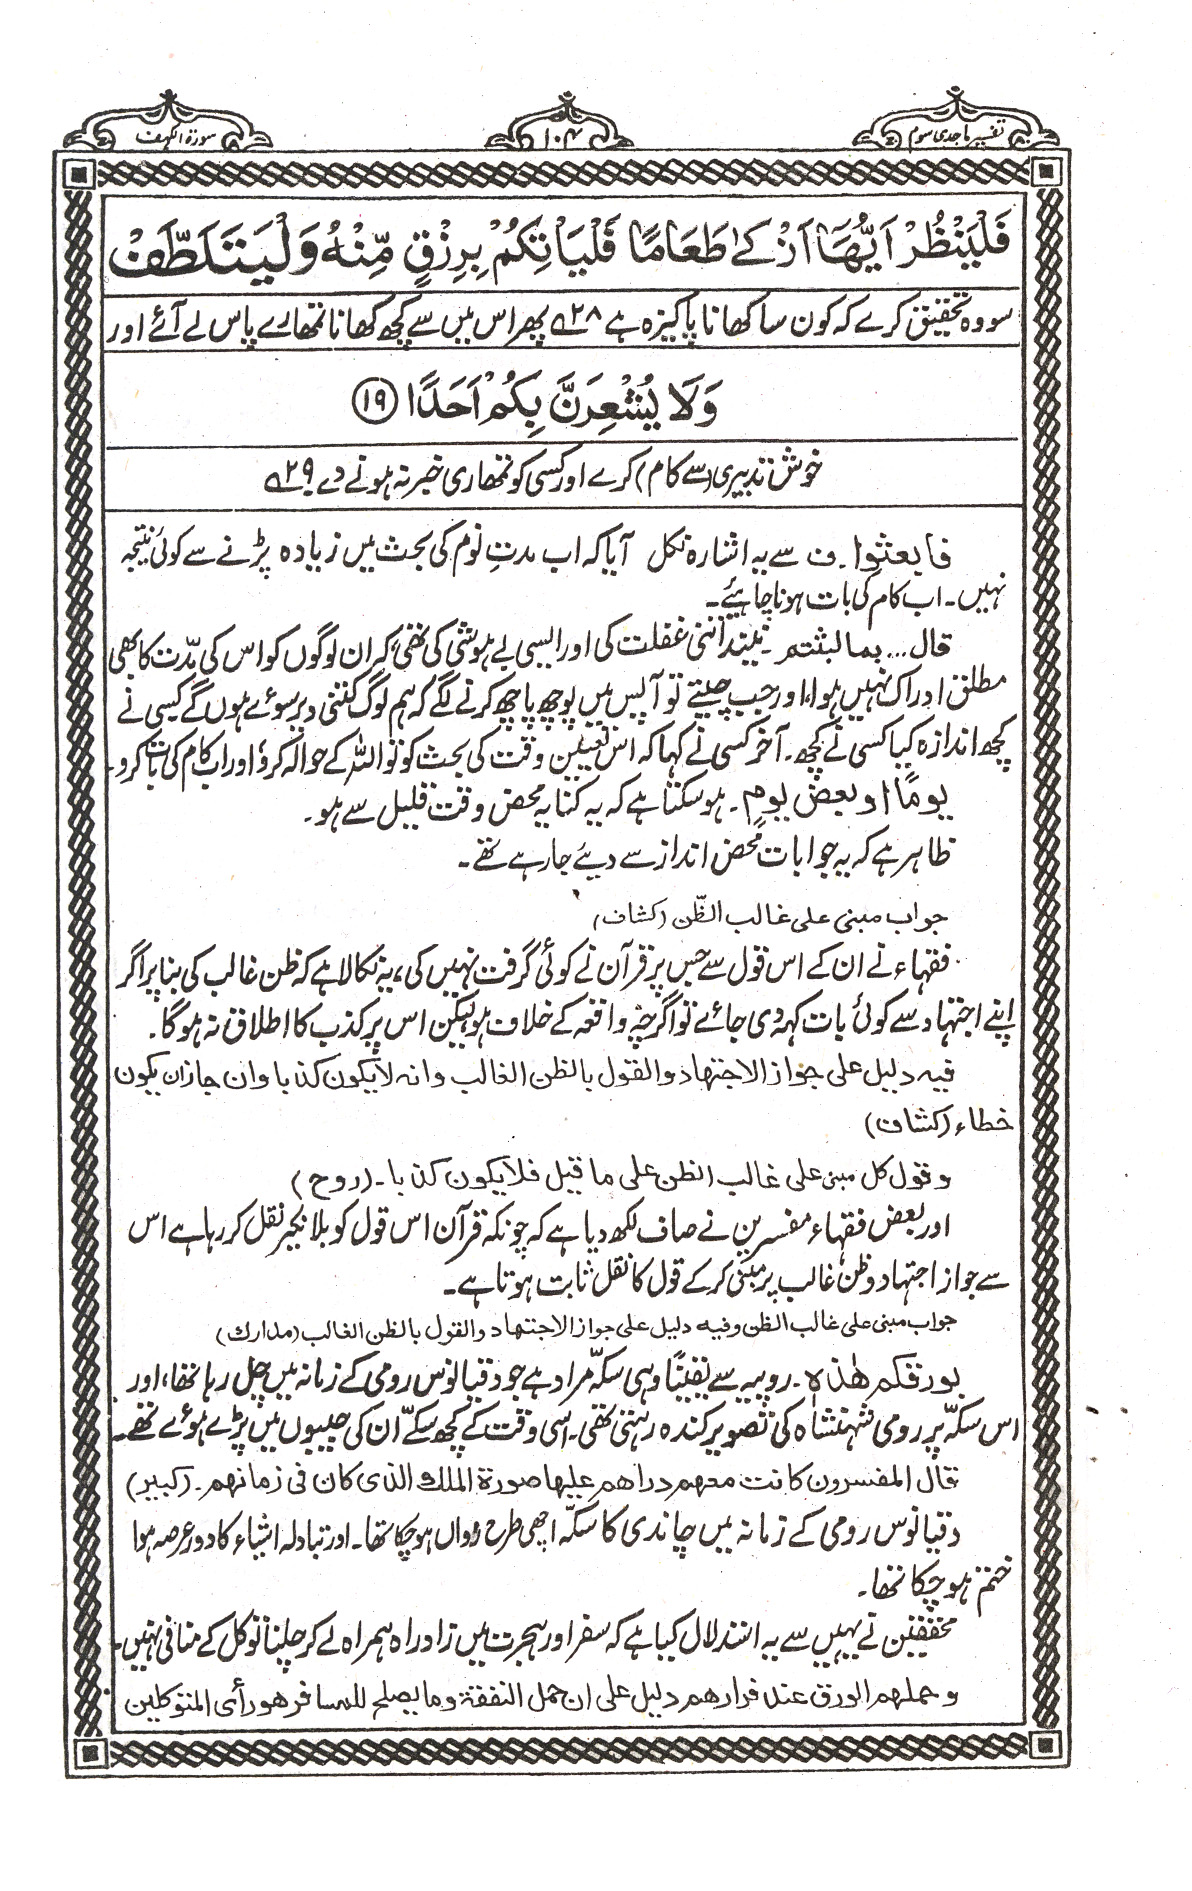 تفسیر ماجدی سوم
۱۰۴
سورۃ الکہف
فَلْيَنْظُرْ اَيُّهَآ اَزْكٰى طَعَامًا فَلْيَاْتِكُمْ بِرِزْقٍ مِّنْهُ وَلْيَتَلَطَّفْ
سو وہ تحقیق کرے کہ کون سا کھانا پاکیزہ ہے ۲۸؎ پھر اس میں سے کچھ کھانا تمھارے پاس لے آئے اور
وَلَا يُشْعِرَنَّ بِكُمْ اَحَدًا ⑲
خوش تدبیری (سے کام) کرے اور کسی کو تمھاری خبر نہ ہونے دے ۲۹؎
فابعثوا۔ ف سے یہ اشارہ نکل آیا کہ اب مدتِ نوم کی بحث میں زیادہ پڑنے سے کوئی نتیجہ
نہیں۔ اب کام کی بات ہونا چاہیئے۔
قال... بما لبثتم۔ نیند اتنی غفلت کی اور ایسی بے ہوشی کی تھی کہ ان لوگوں کو اس کی مدّت کا بھی
مطلق ادراک نہیں ہوا، اور جب چیتے تو آپس میں پوچھ پاچھ کرنے لگے کہ ہم لوگ کتنی دیر سوئے ہوں گے کسی نے
کچھ اندازہ کیا کسی نے کچھ۔ آخر کسی نے کہا کہ اس تعیین وقت کی بحث کو تو اللہ کے حوالہ کرو اور اب کام کی بات کرو۔
یومًا او بعض یومٍ۔ ہو سکتا ہے کہ یہ کنایہ محض وقت قلیل سے ہو۔
ظاہر ہے کہ یہ جوابات محض انداز سے دیئے جا رہے تھے۔
جواب مبنی علی غالب الظّن (کشاف)
فقہاء نے ان کے اس قول سے جس پر قرآن نے کوئی گرفت نہیں کی، یہ نکالا ہے کہ ظن غالب کی بنا پر اگر
اپنے اجتہاد سے کوئی بات کہہ دی جائے تو اگرچہ واقعہ کے خلاف ہو لیکن اس پر کذب کا اطلاق نہ ہوگا۔
فیہ دلیل علی جواز الاجتھاد والقول بالظن الغالب وانہ لا یکون کذبا وان جاز ان یکون
خطاء (کشاف)
وقول کل مبنی علی غالب الظن علی ما قیل فلا یکون کذبا۔ (روح)
اور بعض فقہاء مفسرین نے صاف لکھ دیا ہے کہ چونکہ قرآن اس قول کو بلا نکیر نقل کر رہا ہے اس
سے جواز اجتہاد و ظن غالب پر مبنی کر کے قول کا نقل ثابت ہوتا ہے۔
جواب مبنی علی غالب الظن وفیہ دلیل علی جواز الاجتھاد والقول بالظن الغالب (مدارک)
بورقکم ھٰذہ۔ روپیہ سے یقینًا وہی سکہ مراد ہے جو دقیانوس رومی کے زمانہ میں چل رہا تھا، اور
اس سکہّ پر رومی شہنشاہ کی تصویر کندہ رہتی تھی۔ اسی وقت کے کچھ سکّے ان کی جیبوں میں پڑے ہوئے تھے۔
قال المفسرون کانت معھم دراھم علیھا صورۃ الملک الذی کان فی زمانھم۔ (کبیر)
دقیانوس رومی کے زمانہ میں چاندی کا سکہّ اچھی طرح رواں ہو چکا تھا۔ اور تبادلہ اشیاء کا دور عرصہ ہوا
ختم ہو چکا تھا۔
محققین نے یہیں سے یہ استدلال کیا ہے کہ سفر اور ہجرت میں زاد راہ ہمراہ لے کر چلنا توکل کے منافی نہیں۔
وحملھم الورق عند فرارھم دلیل علی ان حمل النفقۃ وما یصلح للمسافر ھو رأی المتوکلین